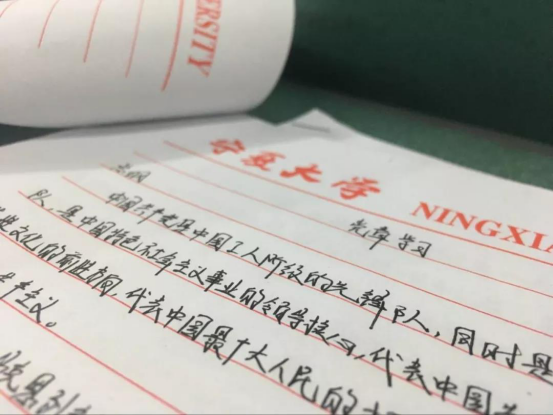 ERSITY
宁夏大学 NINGXIA
党章学习
总纲
中国共产党是中国工人阶级的先锋队,同时是
队,是中国特色社会主义事业的领导核心,代表中国
进文化的前进方向,代表中国最广大人民的
产主义。